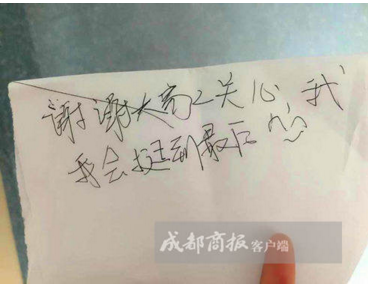 谢谢大家之关心 我
我会挺到最后
成都商报客户端